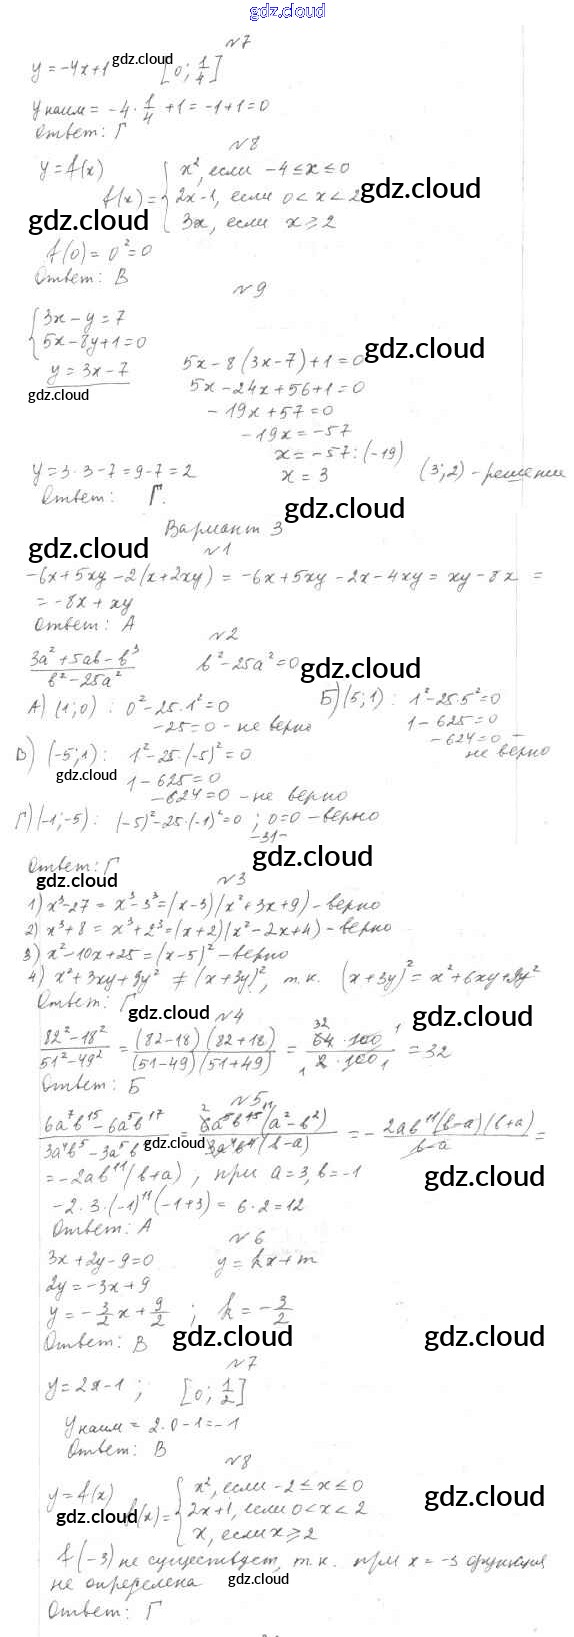 gdz.cloud
№7
y = -4x+1 gdz.cloud [0; 1/4]
y наим = -4 · 1/4 + 1 = -1+1 = 0
Ответ: Г
№8
y = f(x)
f(x) = { x², если -4 ≤ x ≤ 0
2x-1, если 0 < x < 2 gdz.cloud
3x, если x ≥ 2
gdz.cloud
f(0) = 0² = 0
Ответ: В
№9
{ 3x - y = 7
5x - 8y + 1 = 0
y = 3x - 7
5x - 8(3x-7) + 1 = 0 gdz.cloud
5x - 24x + 56 + 1 = 0
gdz.cloud
-19x + 57 = 0
-19x = -57
x = -57 : (-19)
y = 3·3-7 = 9-7 = 2 x = 3 (3;2) - решение
Ответ: Г.
gdz.cloud
Вариант 3
gdz.cloud
№1
-6x+5xy-2(x+2xy) = -6x+5xy-2x-4xy = xy-8x =
= -8x + xy
Ответ: А
№2
(3a²+5ab-b³)/(b²-25a²) b²-25a² = 0 gdz.cloud
А) (1;0): 0²-25·1² = 0
-25 = 0 - не верно
Б) (5;1): 1²-25·5² = 0
1-625 = 0
-624 = 0 -
не верно
В) (-5;1): 1²-25·(-5)² = 0
gdz.cloud 1-625 = 0
-624 = 0 - не верно
Г) (-1;-5): (-5)²-25·(-1)² = 0; 0=0 - верно
-31-
gdz.cloud
Ответ: Г
№3
gdz.cloud
1) x³-27 = x³-3³ = (x-3)(x²+3x+9) - верно
2) x³+8 = x³+2³ = (x+2)(x²-2x+4) - верно
3) x²-10x+25 = (x-5)² - верно
4) x²+3xy+9y² ≠ (x+3y)², т.к. (x+3y)² = x²+6xy+9y²
Ответ: Г
gdz.cloud
№4
gdz.cloud
(82²-18²)/(51²-49²) = (82-18)(82+18)/(51-49)(51+49) = (64·100)/(2·100) = 32
Ответ: Б
№5
(6a⁷b¹⁵-6a⁵b¹⁷)/(3a⁴b⁵-3a⁵b⁴) gdz.cloud = 6a⁵b¹⁵(a²-b²)/3a⁴b⁴(b-a) = -2ab¹¹(b-a)(b+a)/(b-a) =
= -2ab¹¹(b+a), при a=3, b=-1
gdz.cloud
-2·3·(-1)¹¹(-1+3) = 6·2 = 12
Ответ: А
№6
3x+2y-9=0 y = kx+m
2y = -3x+9
y = -3/2x + 9/2; k = -3/2
Ответ: В gdz.cloud gdz.cloud
№7
y = 2x-1; [0; 1/2]
y наим = 2·0-1 = -1
Ответ: В
№8
y = f(x)
gdz.cloud
f(x) = { x², если -2 ≤ x ≤ 0
2x+1, если 0 < x < 2
x, если x ≥ 2
gdz.cloud
f(-3) не существует, т.к. при x = -3 функция
не определена gdz.cloud
Ответ: Г